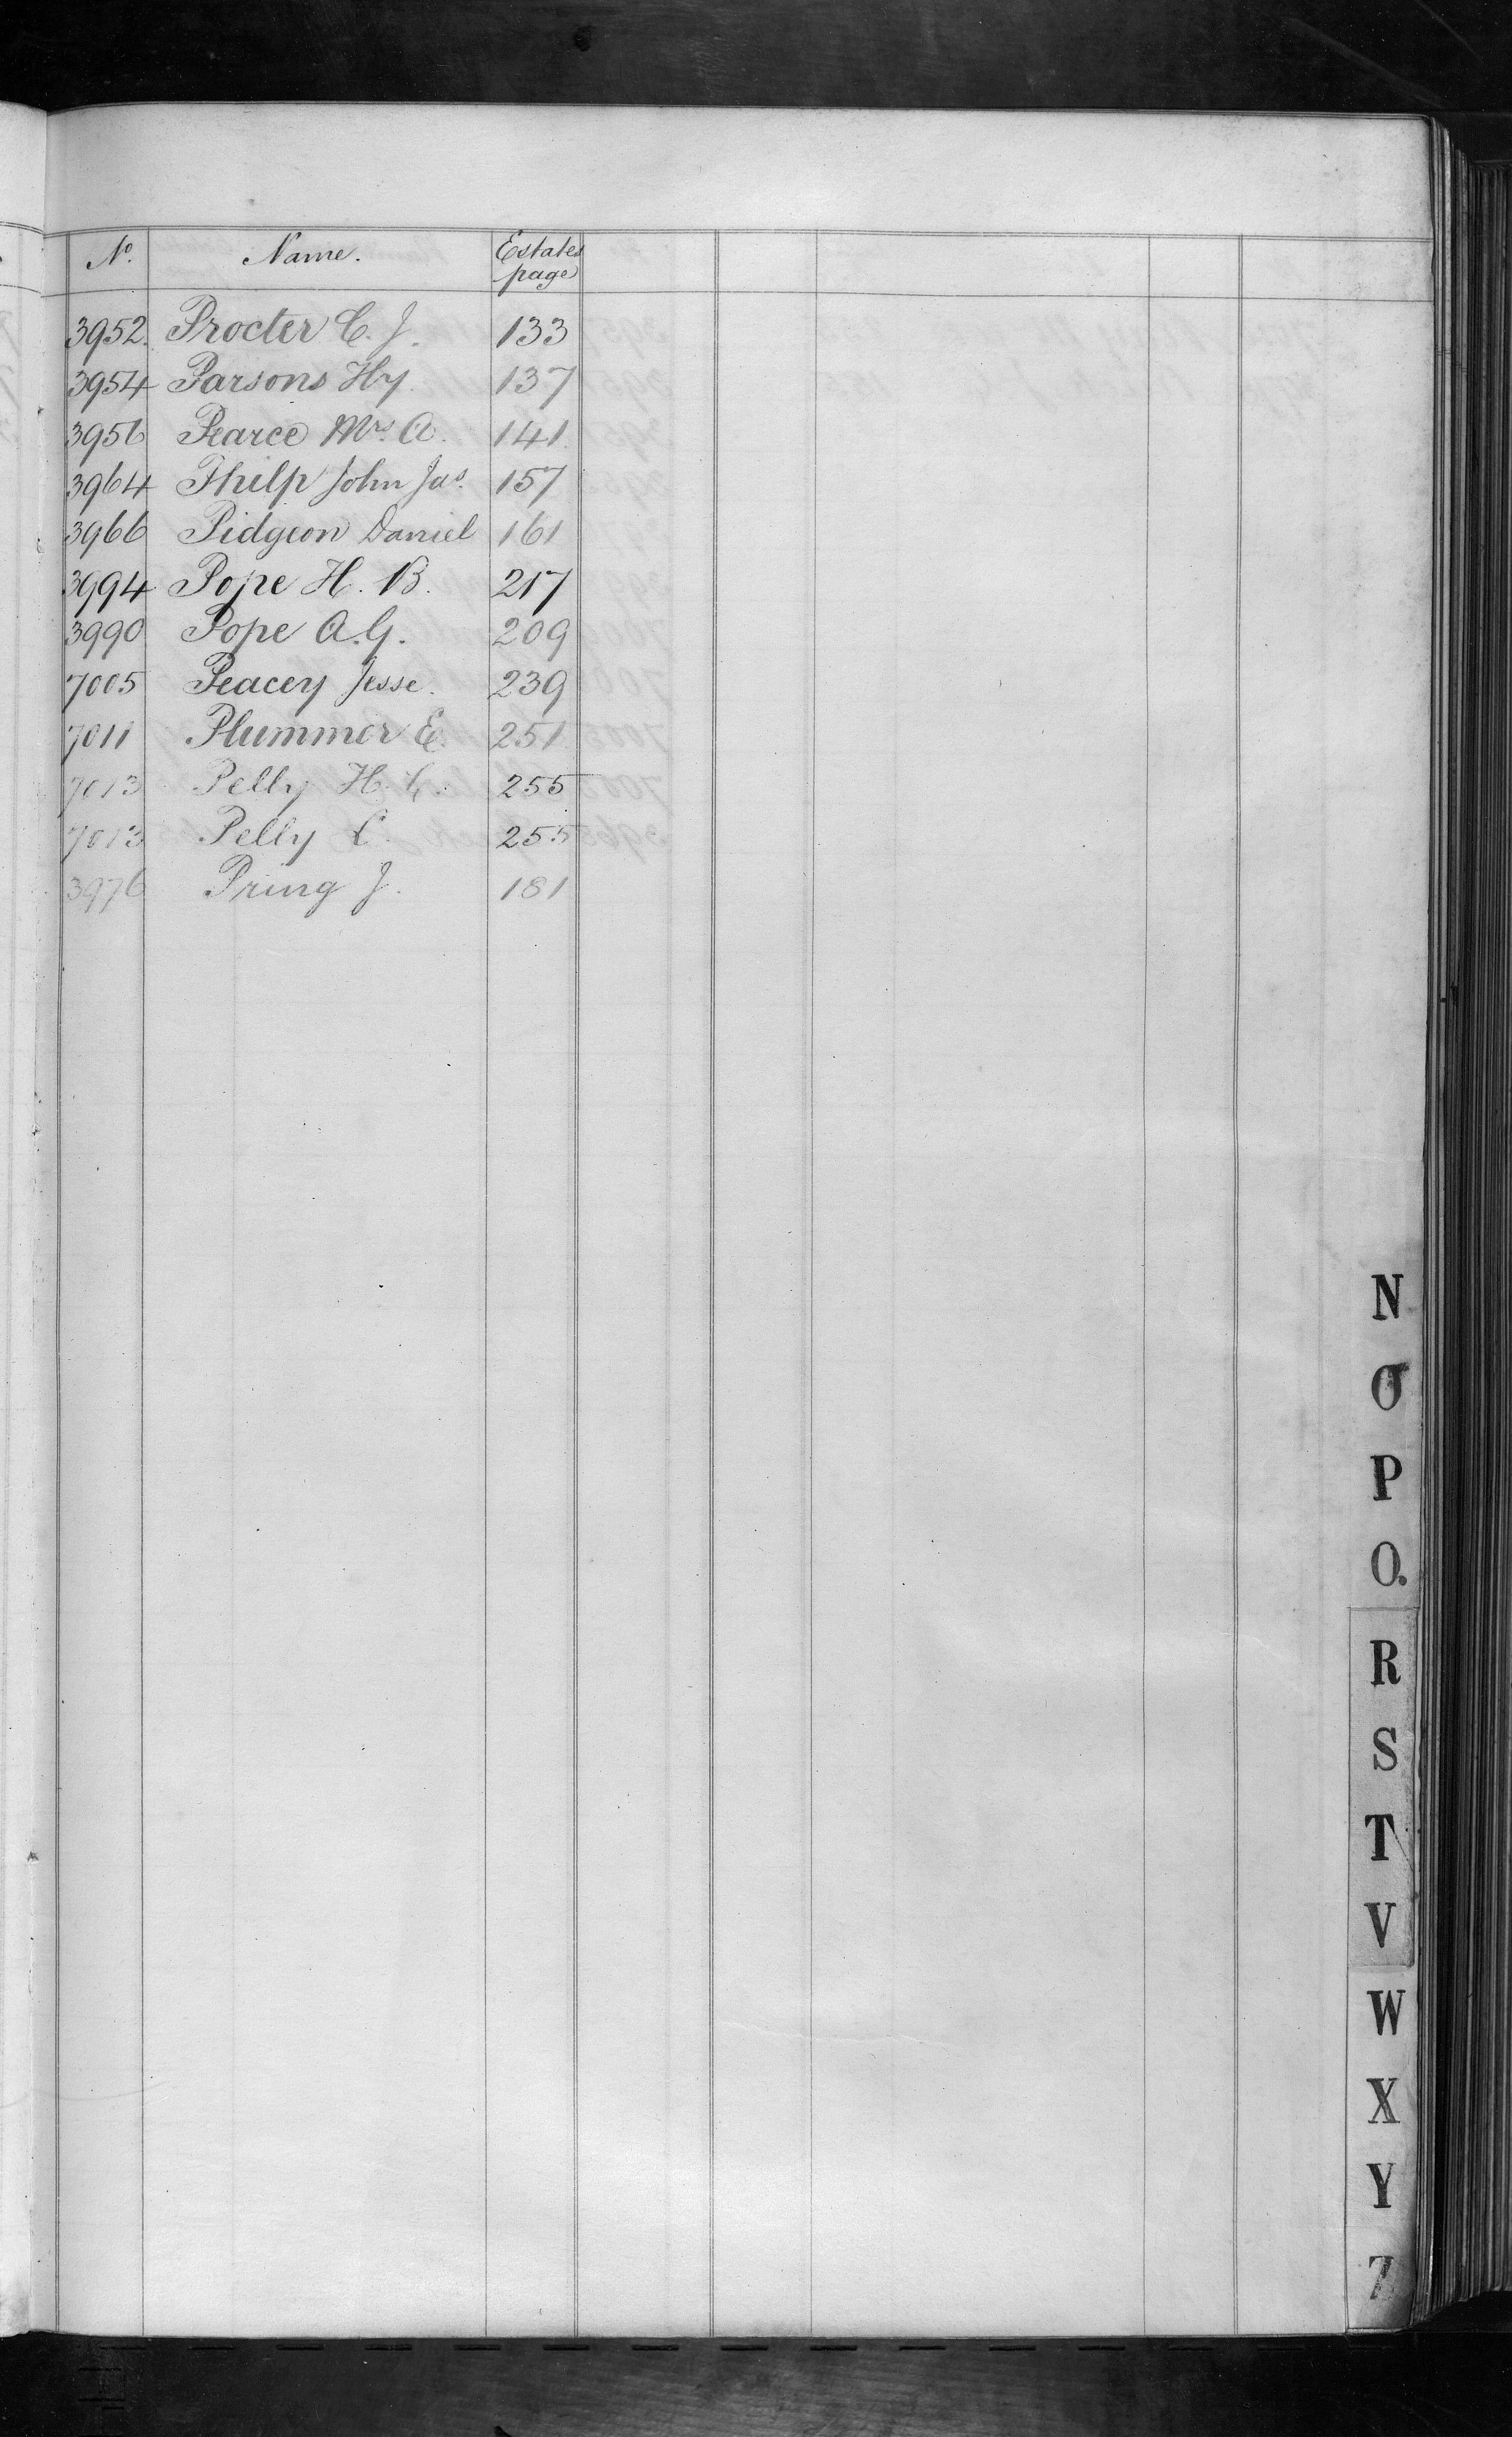 No. Name. Estates page
3952. Procter C. J. 133
3954 Parsons Hy 137
3956 Pearce Mrs A. 141
3964 Philp John Jas. 157
3966 Pidgeon Daniel 161
3994 Pope H. B. 217
3990 Pope A. G. 209
7005 Peacey Jesse. 239
7011 Plummer E. 251
7013 Pelly H. C. 255
7013 Pelly L. 255
3976 Pring J. 181
N
O
P
Q.
R
S
T
V
W
X
Y
Z